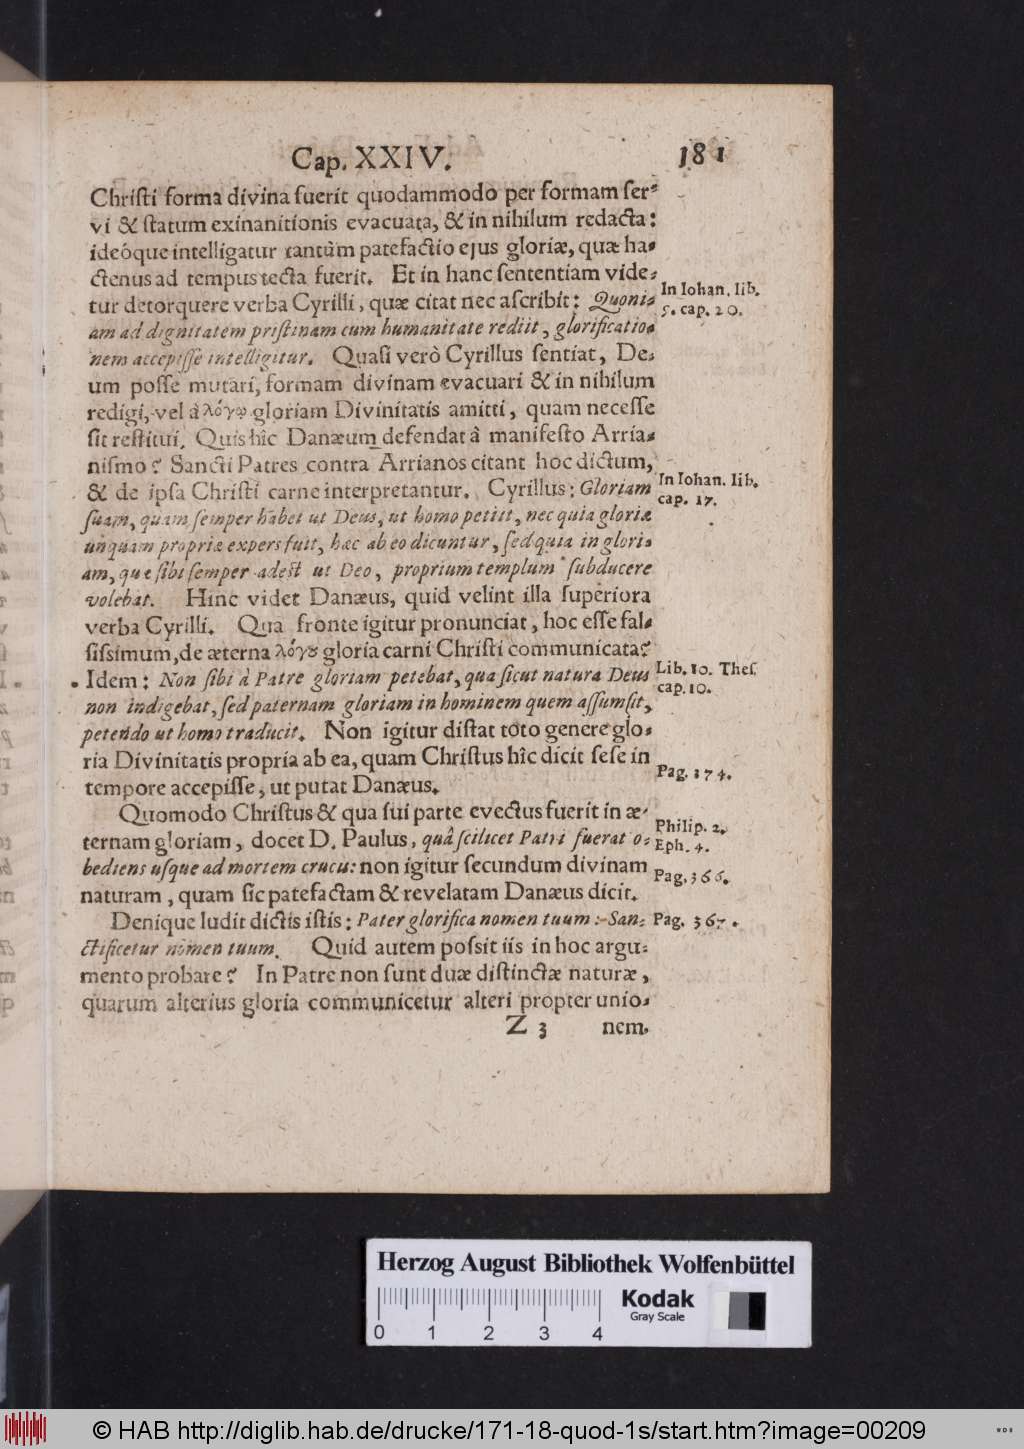 Cap. XXIV. 181
Chriſti forma divina fuerit quodammodo per formam ſer-
vi & ſtatum exinanitionis evacuata, & in nihilum redacta:
ideóque intelligatur tantùm patefactio ejus gloriæ, quæ ha-
ctenus ad tempus tecta fuerit. Et in hanc ſententiam vide-
tur detorquere verba Cyrilli, quæ citat nec aſcribit: Quoni-
In Iohan. lib.
5. cap. 20.
am ad dignitatem priſtinam cum humanitate rediit, glorificatio-
nem accepiſſe intelligitur. Quaſi verò Cyrillus ſentiat, De-
um poſſe mutari, formam divinam evacuari & in nihilum
redigi, vel à λόγῳ gloriam Divinitatis amitti, quam neceſſe
ſit reſtitui. Quis hîc Danæum defendat â manifeſto Arria-
niſmo? Sancti Patres contra Arrianos citant hoc dictum,
& de ipſa Chriſti carne interpretantur. Cyrillus: Gloriam
In Iohan. lib.
cap. 17.
ſuam, quam ſemper habet ut Deus, ut homo petiit, nec quia gloriæ
unquam propriæ expers fuit, hæc ab eo dicuntur, ſed quia in glori-
am, quæ ſibi ſemper adeſt ut Deo, proprium templum ſubducere
volebat. Hinc videt Danæus, quid velint illa ſuperiora
verba Cyrilli. Qua fronte igitur pronunciat, hoc eſſe fal-
ſiſsimum, de æterna λόγου gloria carni Chriſti communicata?
Idem: Non ſibi à Patre gloriam petebat, qua ſicut natura Deus
Lib. 10. Theſ.
cap. 10.
non indigebat, ſed paternam gloriam in hominem quem aſſumſit,
petendo ut homo traducit. Non igitur diſtat toto genere glo-
ria Divinitatis propria ab ea, quam Chriſtus hîc dicit ſeſe in
tempore accepiſſe, ut putat Danæus.
Pag. 374.
Quomodo Chriſtus & qua ſui parte evectus fuerit in æ-
ternam gloriam, docet D. Paulus, quâ ſcilicet Patri fuerat o-
Philip. 2.
Eph. 4.
bediens uſque ad mortem crucis: non igitur ſecundum divinam
naturam, quam ſic patefactam & revelatam Danæus dicit.
Pag. 366.
Denique ludit dictis iſtis: Pater glorifica nomen tuum: San-
Pag. 367.
ctificetur nomen tuum. Quid autem poſsit iis in hoc argu-
mento probare? In Patre non ſunt duæ diſtinctæ naturæ,
quarum alterius gloria communicetur alteri propter unio-
Z 3 nem.
Herzog August Bibliothek Wolfenbüttel
Kodak
Gray Scale
0 1 2 3 4
© HAB http://diglib.hab.de/drucke/171-18-quod-1s/start.htm?image=00209